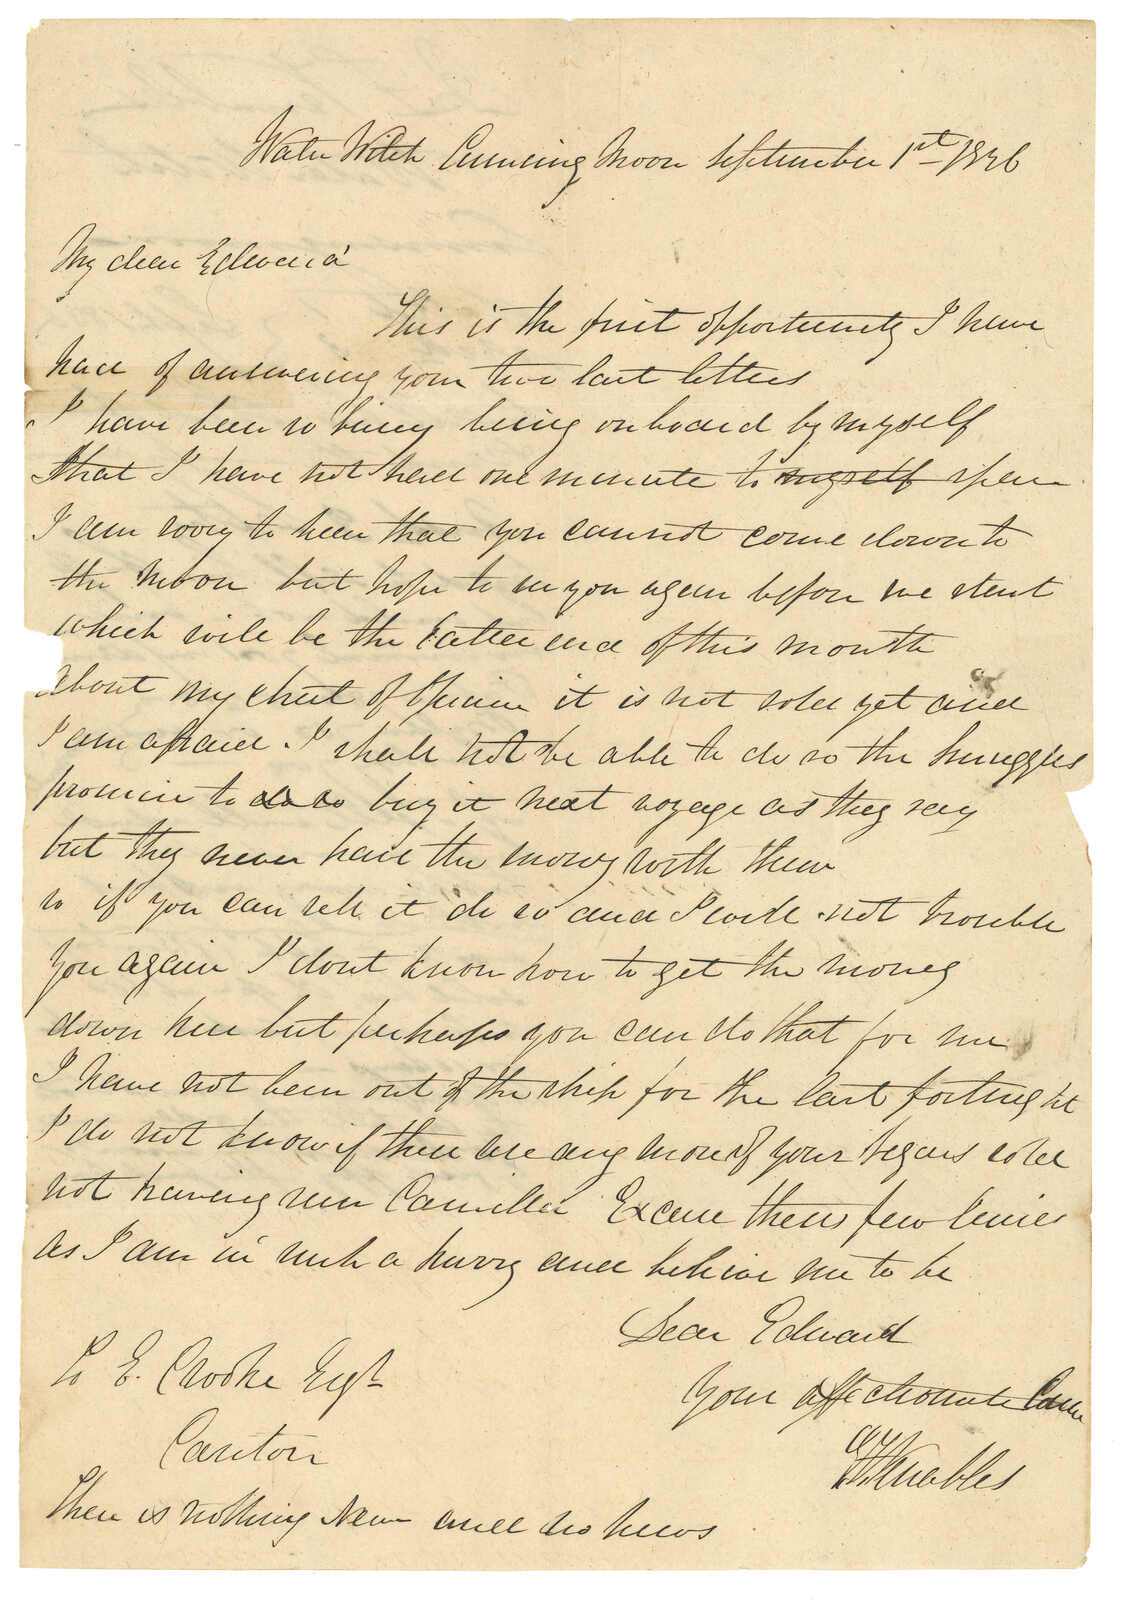 Water Witch Cumsing Moon September 1st 1846
My dear Edward
This is the first opportunity I have
had of answering your two last letters
I have been so busy being on board by myself
that I have not had one minute to myself spare
I am sorry to hear that you cannot come down to
the Moon but hope to see you again before we start
which will be the latter end of this month
About my chest of Opium it is not sold yet and
I am afraid I shall not be able to do so the smuggles
promise to do so buy it next voyage as they say
but they never have the money with them
so if you can sell it do so and I will not trouble
you again I dont know how to get the money
down here but perhaps you can do that for me
I have not been out of the ship for the last fortnight
I do not know if there are any more of your segars sold
not having seen Camilla Excuse these few lines
as I am in such a hurry and believe me to be
Dear Edward
Your affectionate
Knobles
To E. Crooke Esqr
Canton
There is nothing New and no news